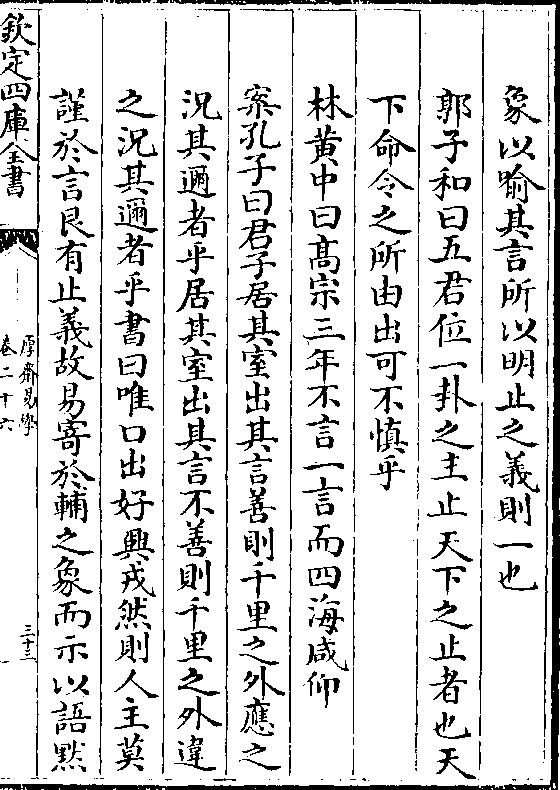 象以喻其言所以明止之義則一也
郭子和曰五君位一卦之主止天下之止者也天
下命令之所由出可不慎乎
林黄中曰髙宗三年不言一言而四海咸仰
案孔子曰君子居其室出其言善則千里之外應之
況其邇者乎居其室出其言不善則千里之外違
之況其邇者乎書曰唯口出好興戎然則人主莫
謹於言艮有止義故易寄於輔之象而示以語黙
欽定四庫全書
厚齋易學
卷二十六
三十三